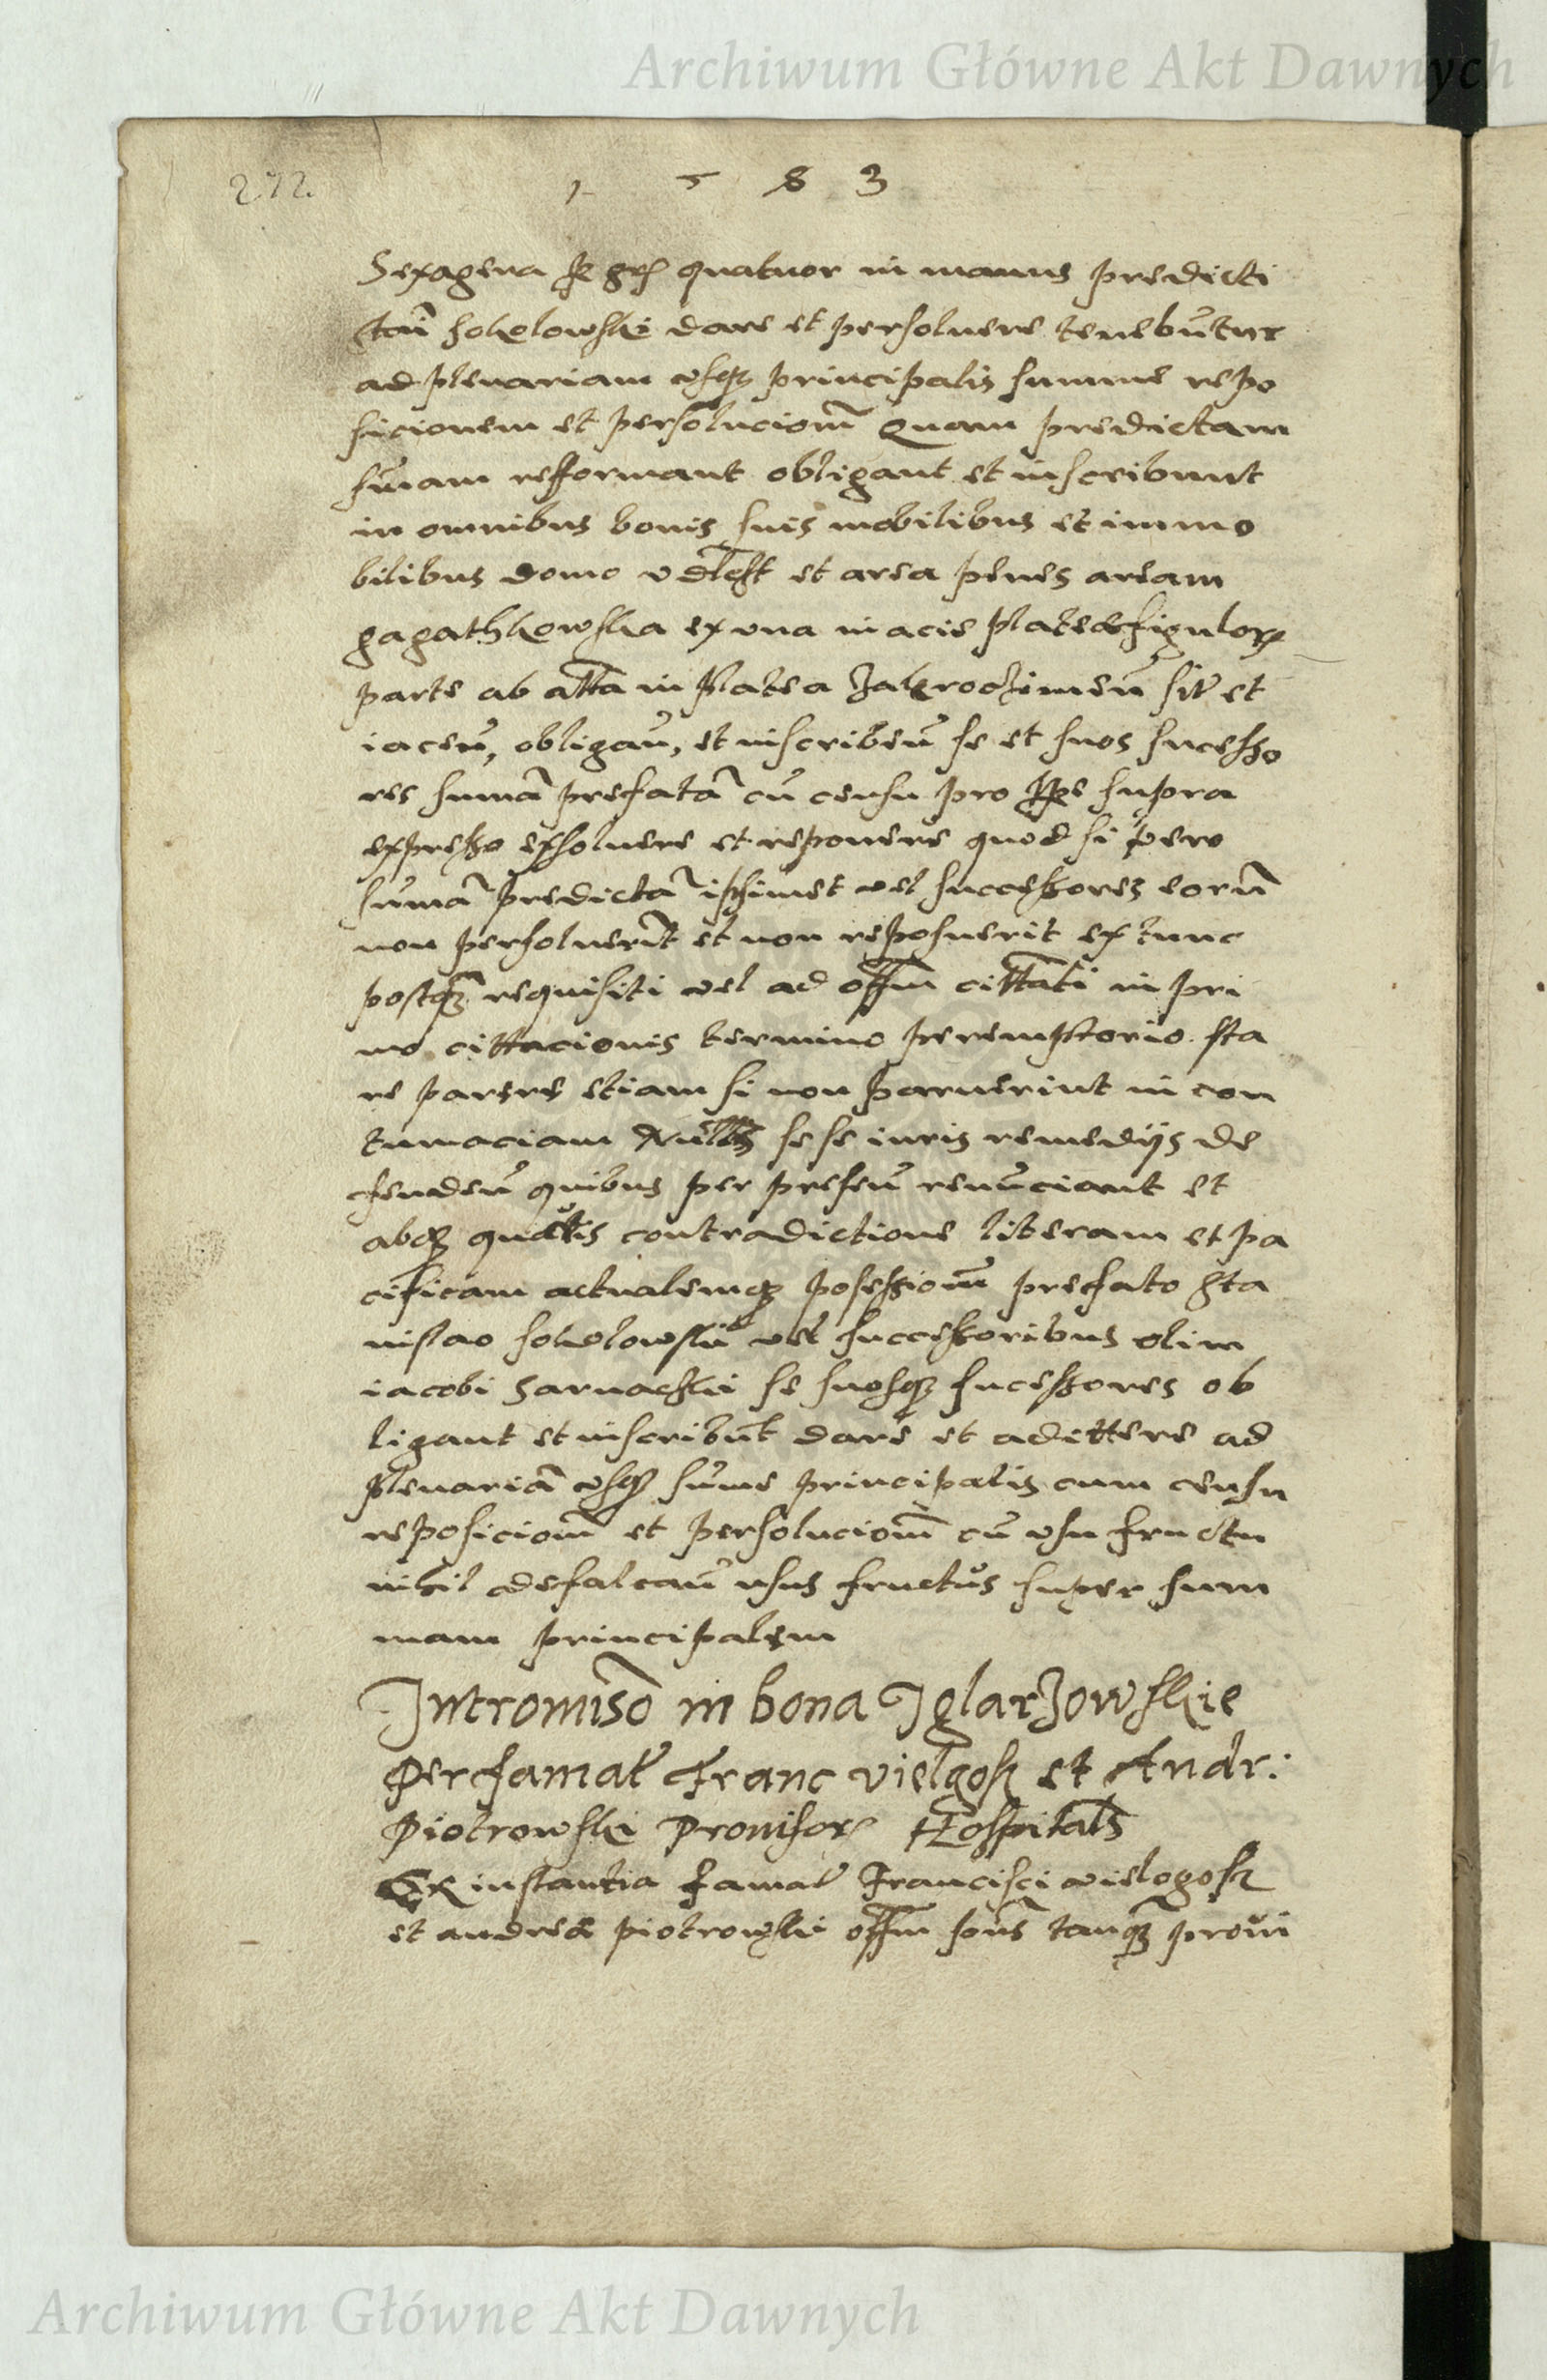 Archiwum Główne Akt Dawnych
272.
1 5 8 3
Sexagena quatuor in manus predicti
Stañ sokolowski dare et persoluere tenebūtur
ad plenariam vsq3 principalis summe repo
sicionem et persolucionē Quam predictam
sūmam refformant obligant et inscribunt
in omnibus bonis suis mobilibus et immo
bilibus domo vdlcst et area penes aream
gagathkowska ex vna in acie platea figulor
parte ab altā in platea Zakroczimeñ sit et
iaceñ, obligañ, et inscribeñ se et suos sucesso
res sumā prefatā cū censu pro supra
expresso exsoluere et reponere quod si vero
sūmā predictā ipsimet vel successores eorū
non persoluerīt et non reposuerit ex tunc
postq3 requisiti vel ad offm cittati in pri
mo cittacionis termino peremptorio sta
re parere etiam si non paruerint in con
tumaciam nullis sese iuris remedijs de
fendeñ quibus per preseñ renūciant et
absq3 quauis contradictione literam et pa
cificam actualemq3 posessionē prefato Sta
nislao sokolowskie vel successoribus olim
iacobi sarnacki se suosq3 sucessores ob
ligant et inscribūt dare et adittere ad
plenariā vsq3 sūme principalis cum censu
reposicionē et persolucionē cū vsu fructu
nihil defalcañ usus fructus super sum
mam principalem
Intromisō in bona IglarZowskie
Per famat Franc vielgosz et Andr:
Piotrowski Prouisor Hospitals
Ex instantia famat Francisci wielogosz
et andreæ piotrowski offm tanq3 proui
Archiwum Główne Akt Dawnych